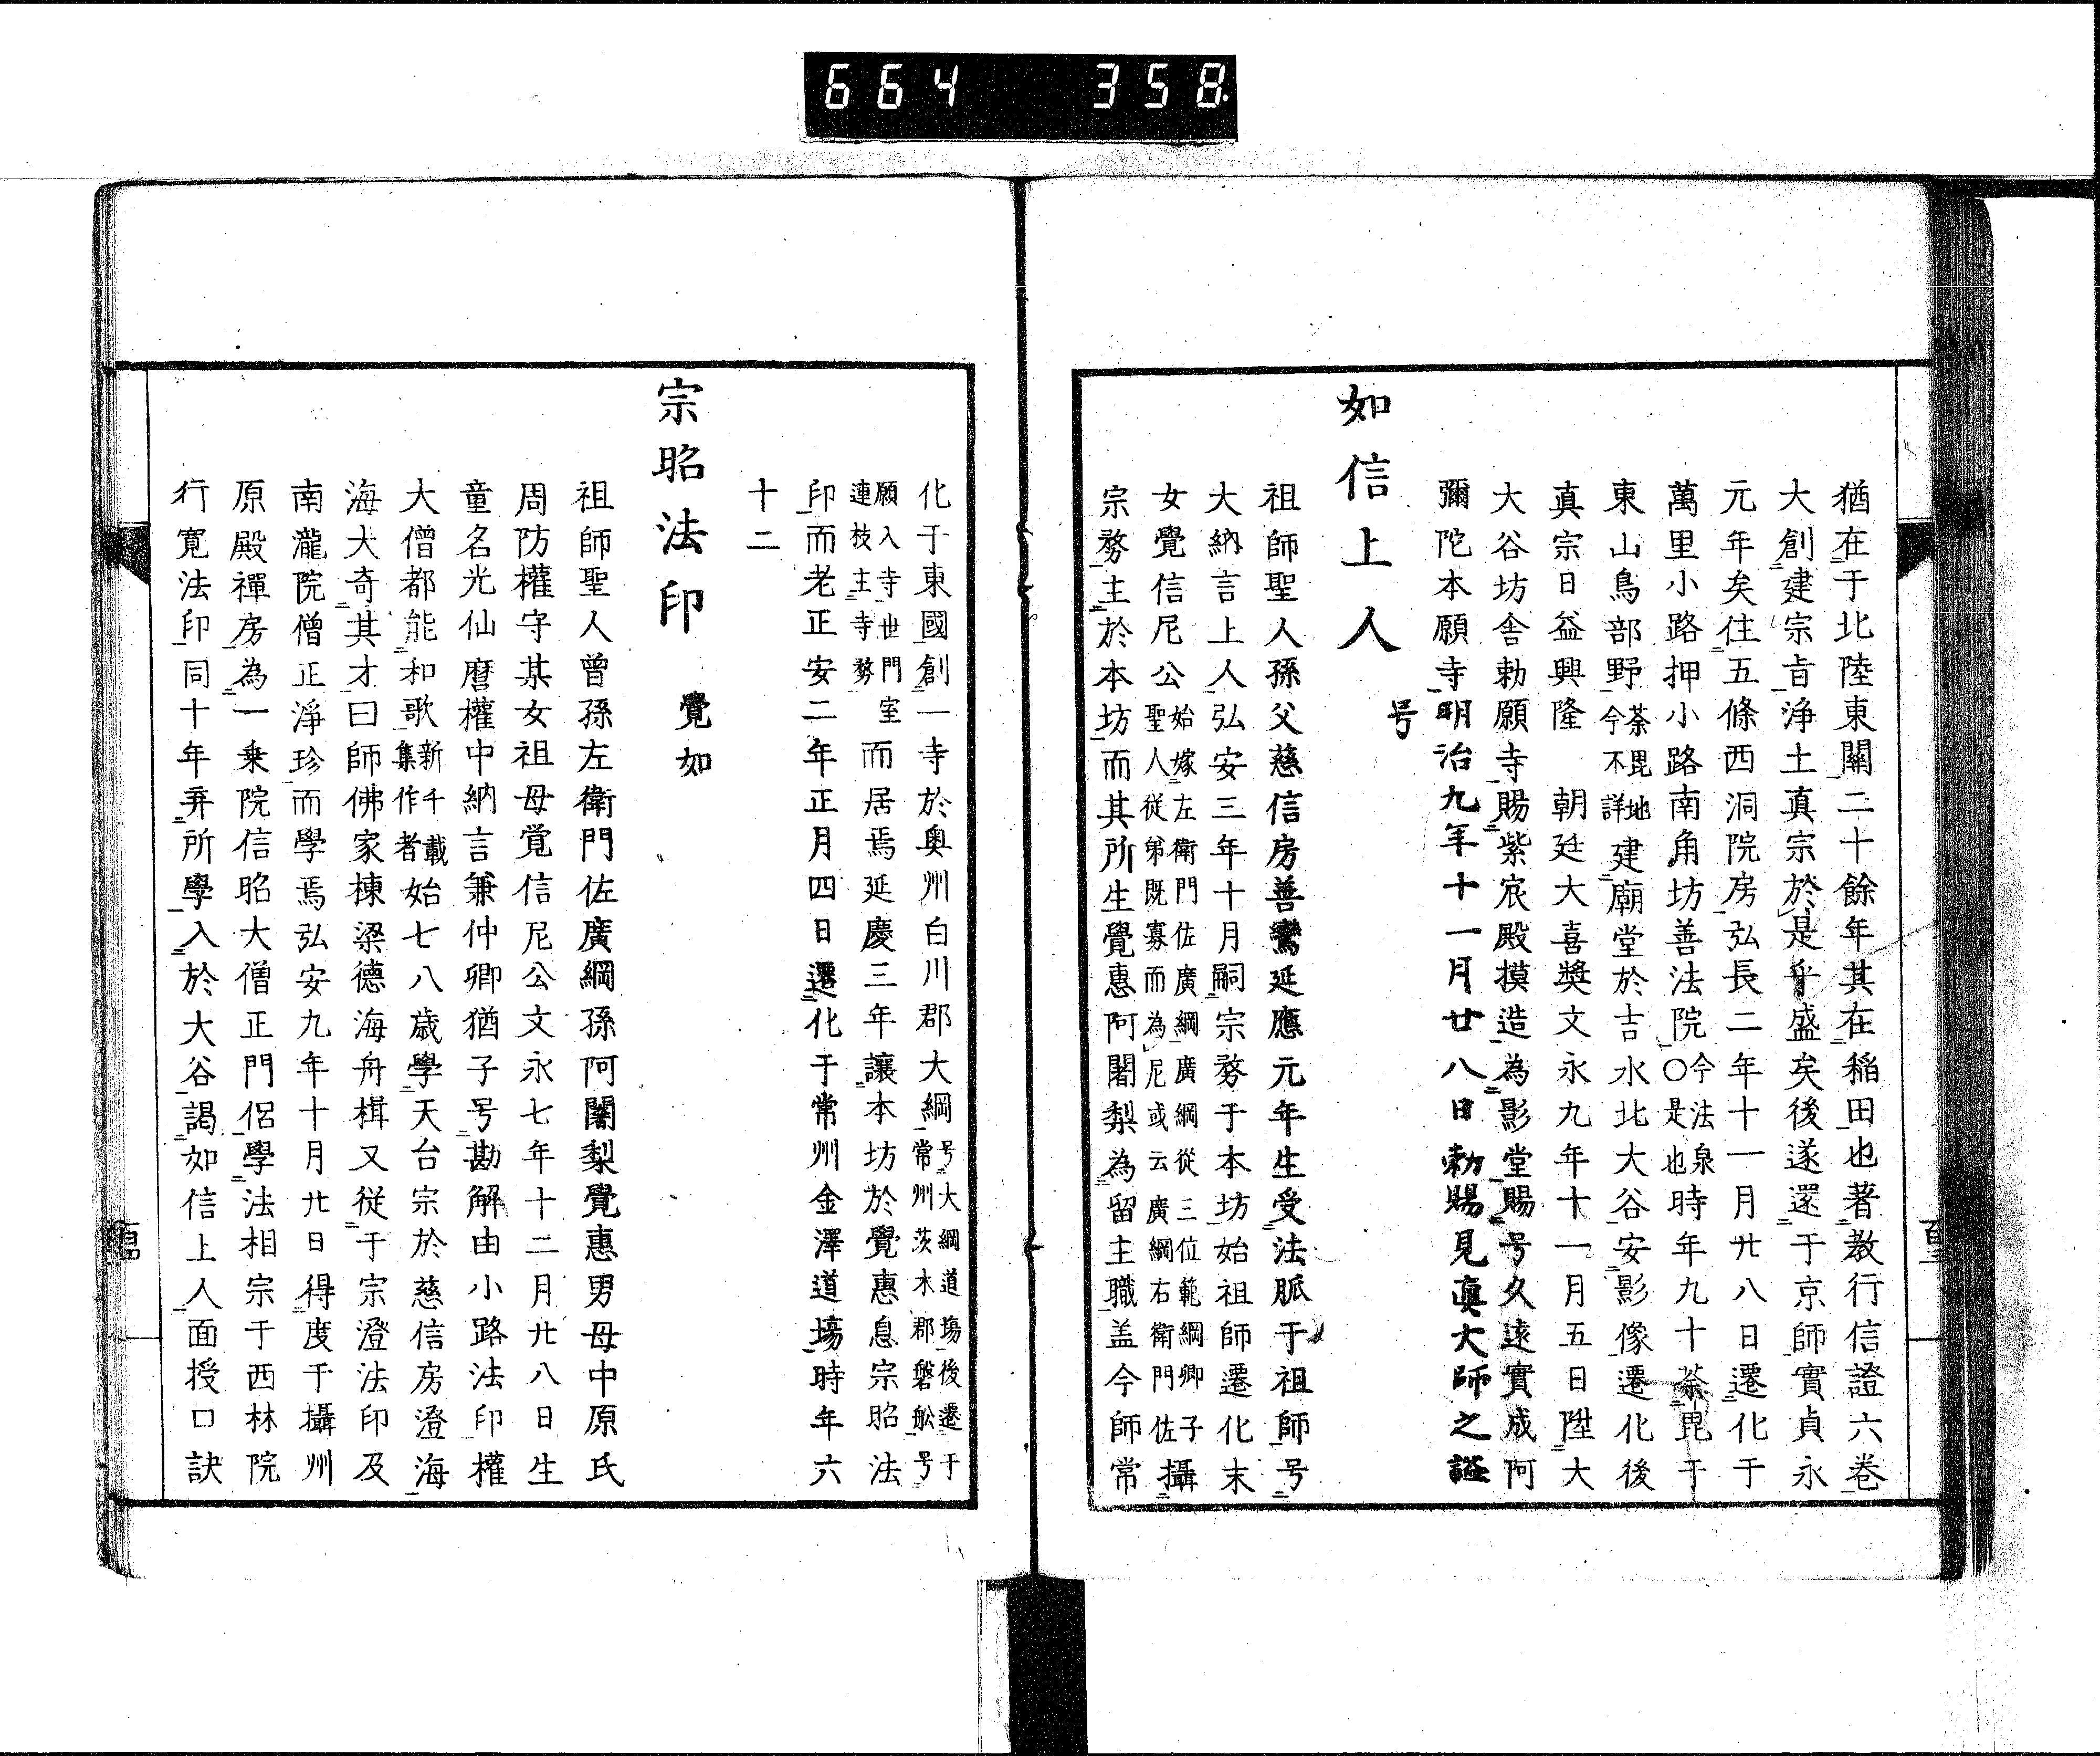 664 358
猶在于北陸東關二十餘年其在稲田也著教行信證六巻
大創建宗旨浄土真宗於是乎盛矣後遂還于京師實貞永
元年矣住五條西洞院房弘長二年十一月廿八日遷化于
萬里小路押小路南角坊善法院今法泉〇是也時年九十荼毘于
東山鳥部野荼毘地今不詳建廟堂於吉水北大谷安影像遷化後
真宗日益興隆 朝廷大喜奬文永九年十一月五日陞大
大谷坊舎勅願寺賜紫宸殿摸造為影堂賜号久遠實成阿
彌陀本願寺明治九年十一月廿八日勅賜見真大師之謚
号
如信上人
祖師聖人孫父慈信房善鸞延應元年生受法脈于祖師号
大納言上人弘安三年十月嗣宗務于本坊始祖師遷化末
女覺信尼公始嫁左衛門佐廣綱廣綱從三位範綱卿子聖人従弟既寡而為尼或云廣綱右衛門佐攝
宗務主於本坊而其所生覺惠阿闍梨為留主職盖今師常
化于東國創一寺於奥州白川郡大綱号大綱道場後遷于常州茨木郡磐舩号
願入寺世門室連枝主寺務而居焉延慶三年讓本坊於覺惠息宗昭法
印而老正安二年正月四日遷化于常州金澤道場時年六
十二
宗昭法印 覺如
祖師聖人曾孫左衛門佐廣綱孫阿闍梨覺惠男母中原氏
周防權守某女祖母覚信尼公文永七年十二月廿八日生
童名光仙麿權中納言兼仲卿猶子号勘解由小路法印權
大僧都能和歌新千載集作者始七八歳學天台宗於慈信房澄海
海大奇其才曰師佛家棟梁德海舟楫又從于宗澄法印及
南瀧院僧正淨珍而學焉弘安九年十月廿日得度于攝州
原殿禪房為一乗院信昭大僧正門侶學法相宗于西林院
行寛法印同十年弃所學入於大谷謁如信上人面授口訣